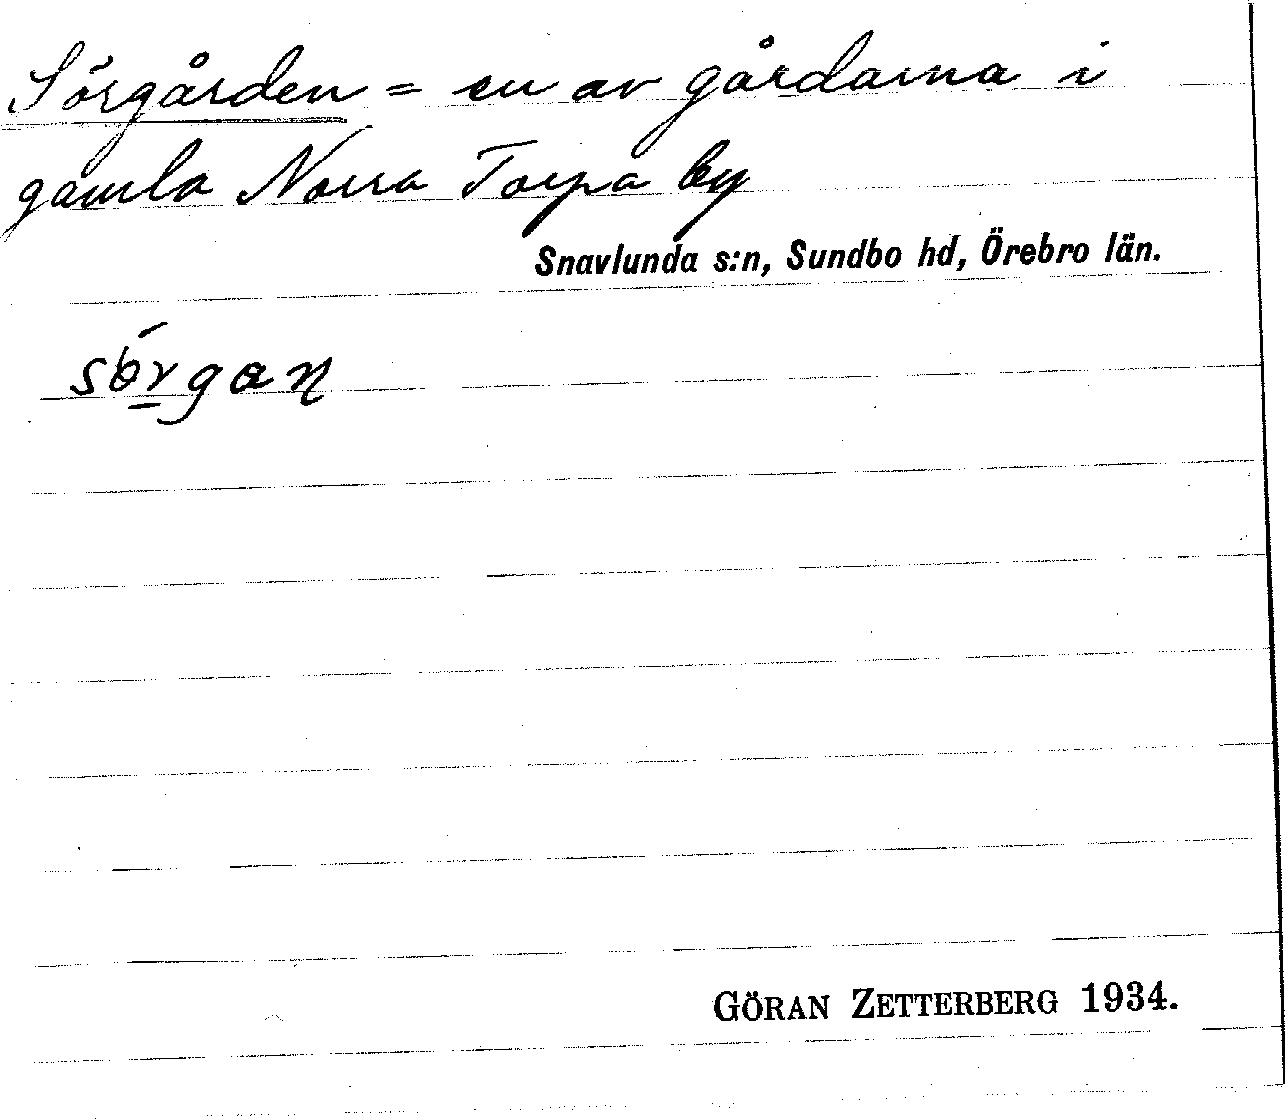 Sörgården = en av gårdarna i
gamla Norra Torpa by
Snavlunda s:n, Sundbo hd, Örebro län.
GÖRAN ZETTERBERG 1934.